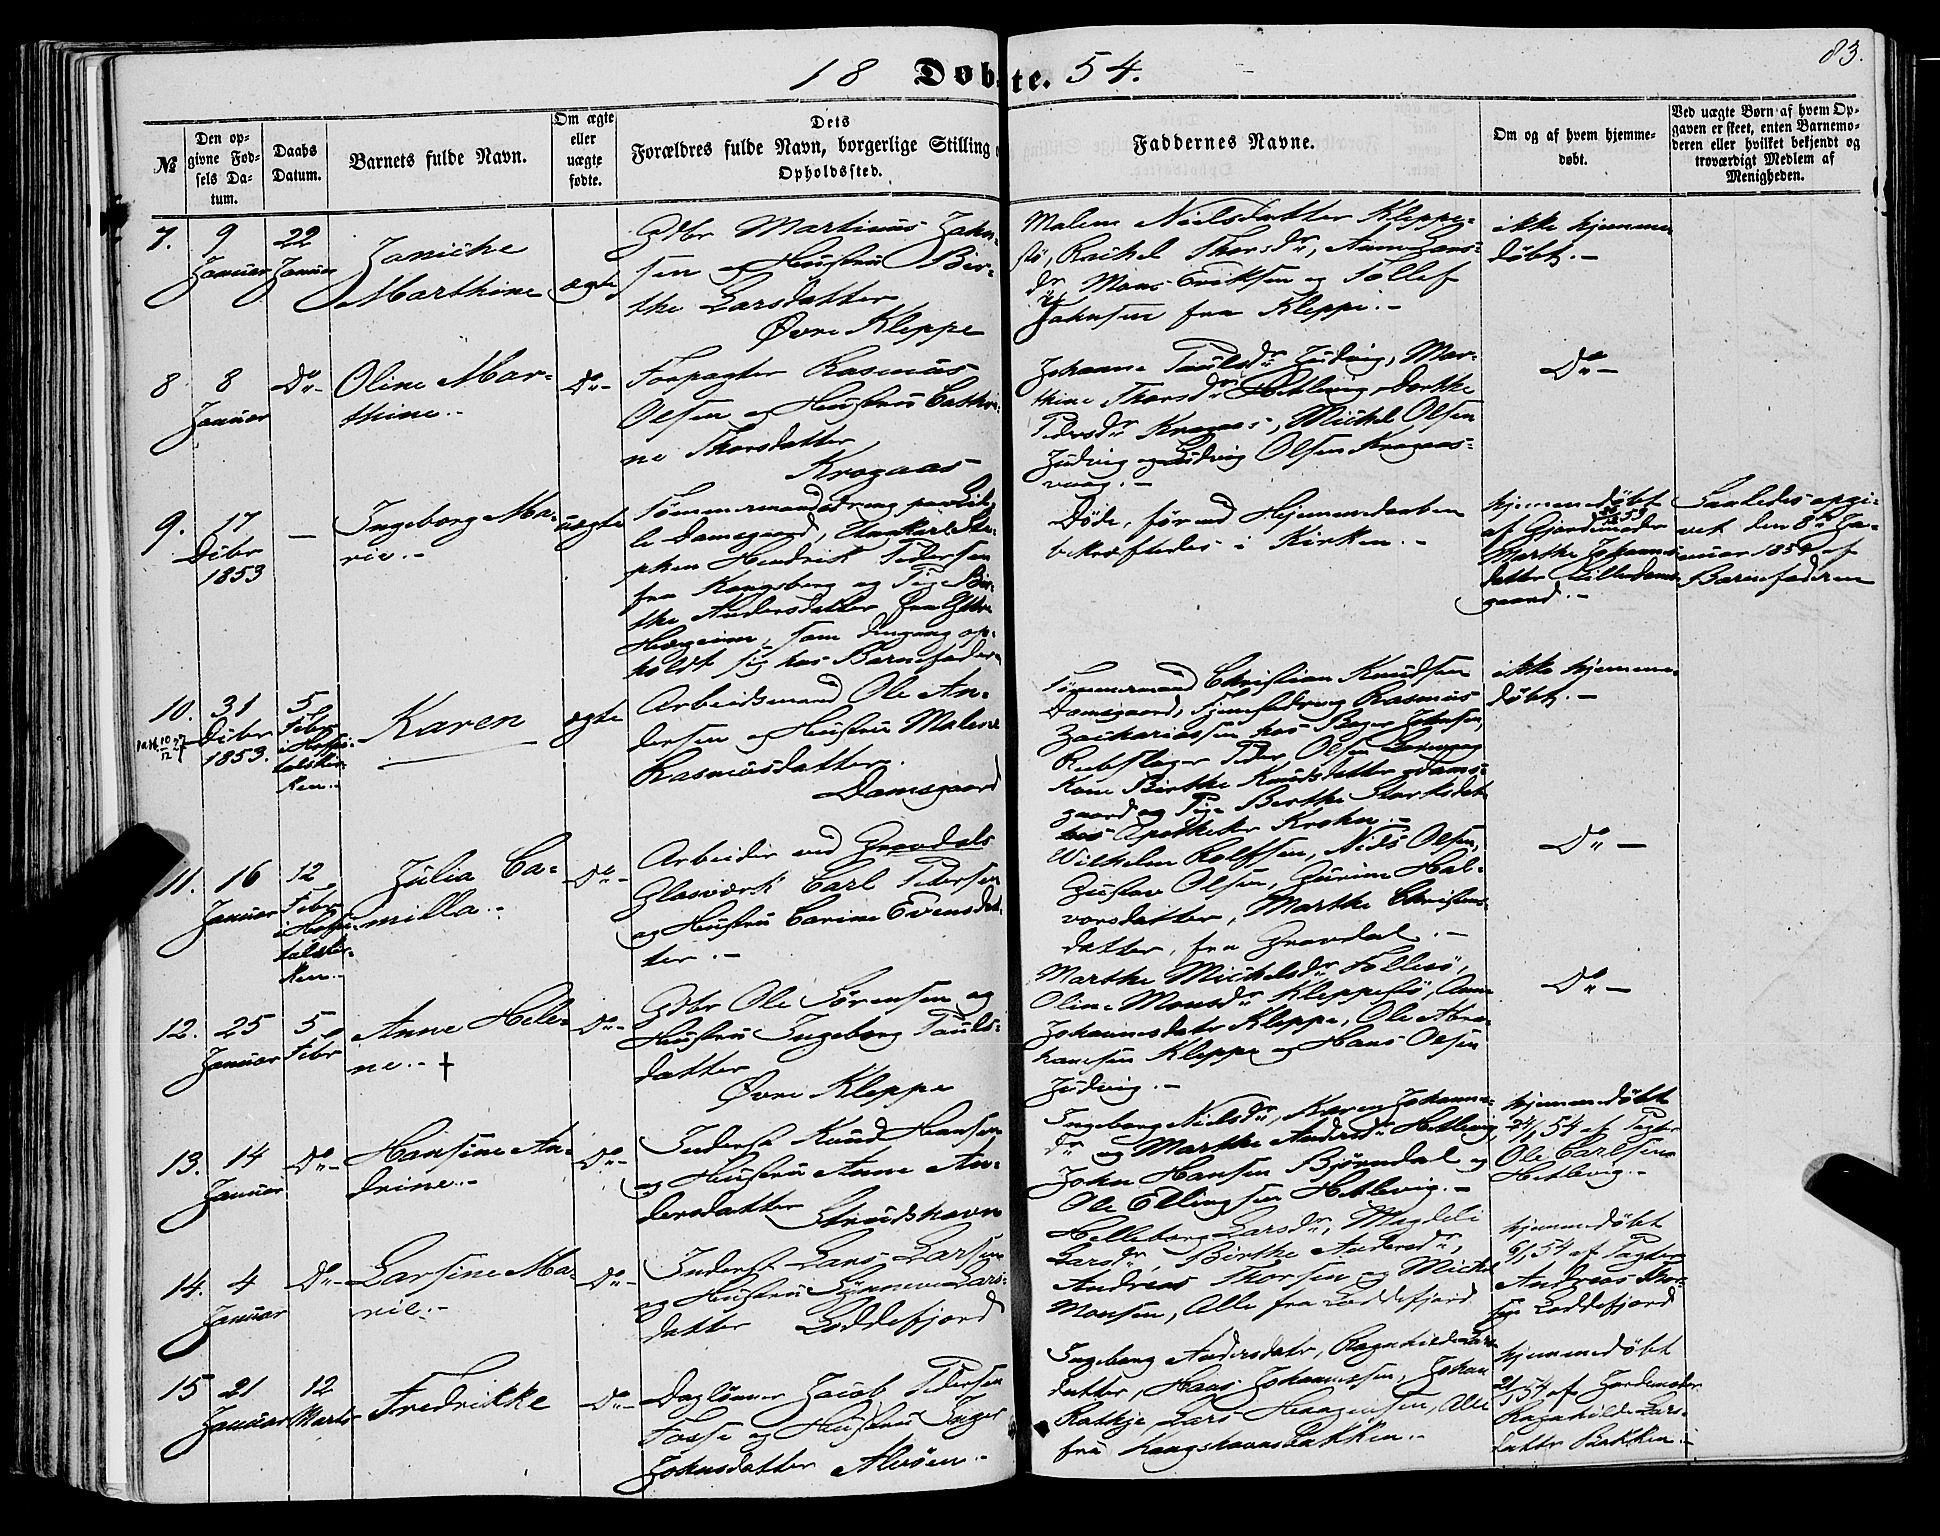 83.
18 Døbte. 54.
№
Den opgivne Fødsels Datum.
Daabs Datum.
Barnets fulde Navn.
Om ægte eller uægte fødte.
Dets Forældres fulde Navn, borgerlige Stilling Opholdssted.
Faddernes Navne.
Om og af hvem hjemmedøbt.
Ved uægte Børn af hvem Opgaven er skeet, enten Barnemoderen eller hvilket bekjendt og troværdigt Medlem af Menigheden.
7.
9 Januar
22 Januar
Janiche
Marthine
ægte
Gdbr Martinus John-
sen og Hustru Bir-
the Larsdatter
Øvre Kleppe
Malene Nielsdatter Kleppe-
stø, Rachel Thorsdr, Anne Hans-
dr, Mons Eriksen og Tollef
Johnsen fra Kleppe.-
ikke hjemme-
døbt.-
8
8 Januar
Do-
Oline Mar-
thine.-
Do-
Forpagter Rasmus
Olsen og Hustru Cathri-
ne Thorsdatter
Krogaas
Johanne Paulsdr Judvig, Mar-
thine Thorsdr Hetlevig, Dorthe
Pedersdr Krogaas, Michel Olsen
Judvig og Ludvig Olsen Krogaas-
vaag.-
Do-
9.
17 Debr 1853
-
Ingeborg Ma-
rie.-
uægte
Tømmermandsdreng paa Lil-
le Damsgaard, Ungkarl Ste-
phen Hendrik Pedersen
fra Kongsberg og Pige Bir-
the Andersdatter fra Ytre
som dengang op-
holdt sig hos Barnefaderen
Døde, førend Hjemmedaaben
bekræftedes i Kirken.-
hjemmedøbt
af Gjordemoder
Marthe Johannes-
datter Lille Dams-
gaard.-
Saaledes opgi-
vet den 8de Ja-
nuar 1854 af
Barnefaderen
10.
31 Debr 1853.
5 Febr i Hospitalskirken.-
Karen
ægte
Arbeidsmand Ole An-
dersen og Hustru Malene
Rasmusdatter.
Damsgaard
Tømmermand Christian Knudsen
Damsgaard, Tjenestedreng Rasmus
Zachariassen hos Bager Johnsen,
Rebslager Peder Olsen
Kone Birthe Knudsdatter Dams-
gaard og Pige Berthe
hos Apotheker Krohn.-
ikke hjemme-
døbt.-
11.
16 Januar
12 Febr i Hospitalskirken.-
Julia Ca-
milla.-
Do-
Arbeider ved Gravdals
Glasværk Carl Pedersen
og Hustru Carine Evensdat-
ter.-
Wilhelm Rolfsen, Niels Olsen,
Gustav Olsen, Gurine Hal-
vorsdatter, Marthe Christens-
datter, fra Gravdal.-
Do-
12.
25 Januar
5 Febr
Anne Hele-
ne.- +
Do-
Gdbr Ole Sørensen og
Hustru Ingeborg Pauls-
datter
Øvre Kleppe
Marthe Michelsdr Follesø,
Oline Monsdr Kleppestø, Anne
Johannesdatr Kleppe, Ole Abra-
hamsen Kleppe og Hans Olsen
Judvig.-
Do-
13.
14 Januar
Do-
Hansine An-
drine.-
Do-
Inderst Knud Hansen
og Hustru Anne An-
dersdatter Strudshavn
Ingeborg Nielsdr, Karen Johannes-
dr og Marthe Andersdr Hetlevig,
John Hansen Bjørndal og
Ole Ellingsen Hetlevig.-
hjemmedøbt
24/1 54 af Pagter
Ole Carlsen
Hetlevig.-
14.
4 Januar
Do-
Larsine Ma-
rie.-
Do-
Inderst Lars Larsen
og Hustru Synneve Lars-
datter Loddefjord
Helleborg Larsdr, Magdeli
Larsdr, Birthe Andersdr,
Andreas Thorsen og Michel
Monsen, Alle fra Loddefjord
hjemmedøbt
6/1 54 af Pagter
Andreas Thor-
sen Loddefjord
15
21 Januar
12 Marts
Fredrikke
Do-
Daglønner Jacob Pedersen
Fosse og Hustru Inger
Johnsdatter Alvøen.-
Ingeborg Andersdatr, Ragnhilde Lars-
datter, Hans Johannessen, Johan
Rathje, Lars Haagensen, Alle
fra Kongshavnsbakken.-
hjemmedøbt
21/1 54 af Jordemoder
Ragnhilde Lars-
datter Bakken.-